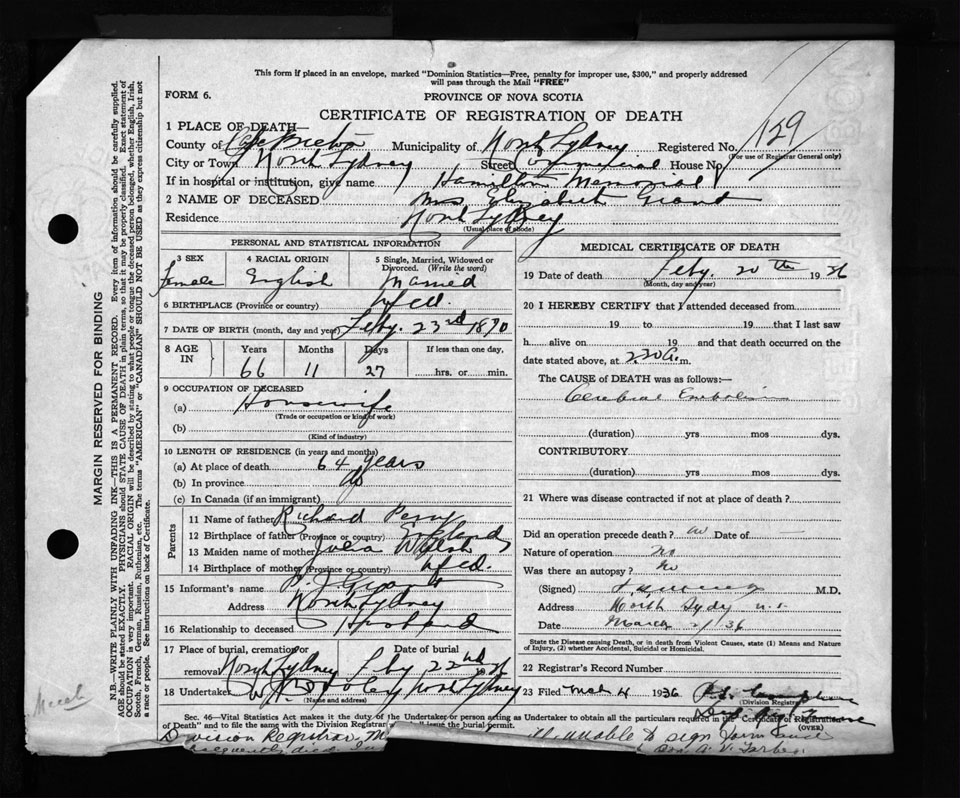 This form if placed in an envelope, marked "Dominion Statistics—Free, penalty for improper use, $300," and properly addressed
will pass through the Mail "FREE"
FORM 6.
PROVINCE OF NOVA SCOTIA
CERTIFICATE OF REGISTRATION OF DEATH
129
1 PLACE OF DEATH—
County of Cape Breton Municipality of North Sydney Registered No.
(For use of Registrar General only)
City or Town North Sydney Street Commercial House No
If in hospital or institution, give name Hamilton Memorial
2 NAME OF DECEASED Mrs Elizabeth Grant
Residence North Sydney
(Usual place of abode)
PERSONAL AND STATISTICAL INFORMATION
3 SEX
female
4 RACIAL ORIGIN
English
5 Single, Married, Widowed or
Divorced. (Write the word)
Married
6 BIRTHPLACE (Province or country) Nfld.
7 DATE OF BIRTH (month, day and year) Feby. 23rd 1870
8 AGE IN
Years Months Days If less than one day,
66 11 27 hrs. or min.
9 OCCUPATION OF DECEASED
(a) Housewife
(Trade or occupation or kind of work)
(b)
(Kind of industry)
10 LENGTH OF RESIDENCE (in years and months)
(a) At place of death 64 years
(b) In province do
(c) In Canada (if an immigrant)
Parents
11 Name of father Richard Perry
12 Birthplace of father (Province or country) England
13 Maiden name of mother Julia Walsh
14 Birthplace of mother (Province or country) Nfld.
15 Informant's name Grant
Address North Sydney
16 Relationship to deceased Husband
17 Place of burial, cremation or Date of burial
removal North Sydney Feby 22nd 1936
18 Undertaker North Sydney
(Name and address)
MEDICAL CERTIFICATE OF DEATH
19 Date of death Feby. 20th 1936
(Month, day and year)
20 I HEREBY CERTIFY that I attended deceased from
19 to 19 that I last saw
h alive on 19 and that death occurred on the
date stated above, at 2.20 a. m.
The CAUSE of DEATH was as follows:—
Cerebral Embolism
(duration) yrs mos dys.
CONTRIBUTORY
(duration) yrs mos dys.
21 Where was disease contracted if not at place of death?
Did an operation precede death? Date of
Nature of operation no
Was there an autopsy? No
(Signed) M.D.
Address North Sydy N.S.
Date March 2/36
State the Disease causing Death, or in death from Violent Causes, state (1) Means and Nature
of Injury, (2) whether Accidental, Suicidal or Homicidal.
22 Registrar's Record Number
23 Filed Mch 4 1936
(Division Registrar)
Sec. 46—Vital Statistics Act makes it the duty of the Undertaker or person acting as Undertaker to obtain all the particulars required in the Certificate of Registration
of Death" and to file the same with the Division Registrar
the burial permit.
(OVER)
Division Registrar
unable to sign form
MARGIN RESERVED FOR BINDING
N.B.—WRITE PLAINLY WITH UNFADING INK—THIS IS A PERMANENT RECORD. Every item of information should be carefully supplied.
AGE should be stated EXACTLY. PHYSICIANS should STATE CAUSE OF DEATH in plain terms, so that it may be properly classified. Exact statement of
OCCUPATION is very important. RACIAL ORIGIN will be described by stating to what people or tongue the deceased person belonged, whether English, Irish,
Scotch, French, German, Russian, Ruthenian, etc. The terms "AMERICAN" or "CANADIAN" SHOULD NOT BE USED as they express citizenship but not
a race or people. See instructions on back of Certificate.